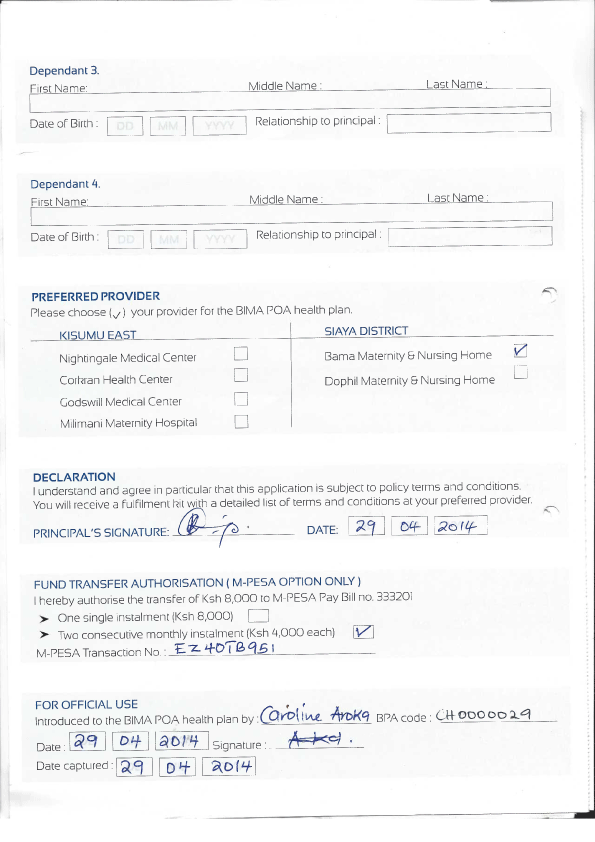 Dependant 3.
First Name: Middle Name : Last Name :
Date of Birth : DD MM YYYY Relationship to principal :
Dependant 4.
First Name: Middle Name : Last Name :
Date of Birth : DD MM YYYY Relationship to principal :
PREFERRED PROVIDER
Please choose (✓) your provider for the BIMA POA health plan.
KISUMU EAST SIAYA DISTRICT
Nightingale Medical Center Bama Maternity & Nursing Home ✓
Corkran Health Center Dophil Maternity & Nursing Home
Godswill Medical Center
Milimani Maternity Hospital
DECLARATION
I understand and agree in particular that this application is subject to policy terms and conditions.
You will receive a fulfilment kit with a detailed list of terms and conditions at your preferred provider.
PRINCIPAL'S SIGNATURE: DATE: 29 04 2014
FUND TRANSFER AUTHORISATION ( M-PESA OPTION ONLY )
I hereby authorise the transfer of Ksh 8,000 to M-PESA Pay Bill no. 333201
➤ One single instalment (Ksh 8,000)
➤ Two consecutive monthly instalment (Ksh 4,000 each) ✓
M-PESA Transaction No. : EZ40TB951
FOR OFFICIAL USE
Introduced to the BIMA POA health plan by : Caroline Aroka BPA code : CH0000029
Date : 29 04 2014 Signature :
Date captured : 29 04 2014